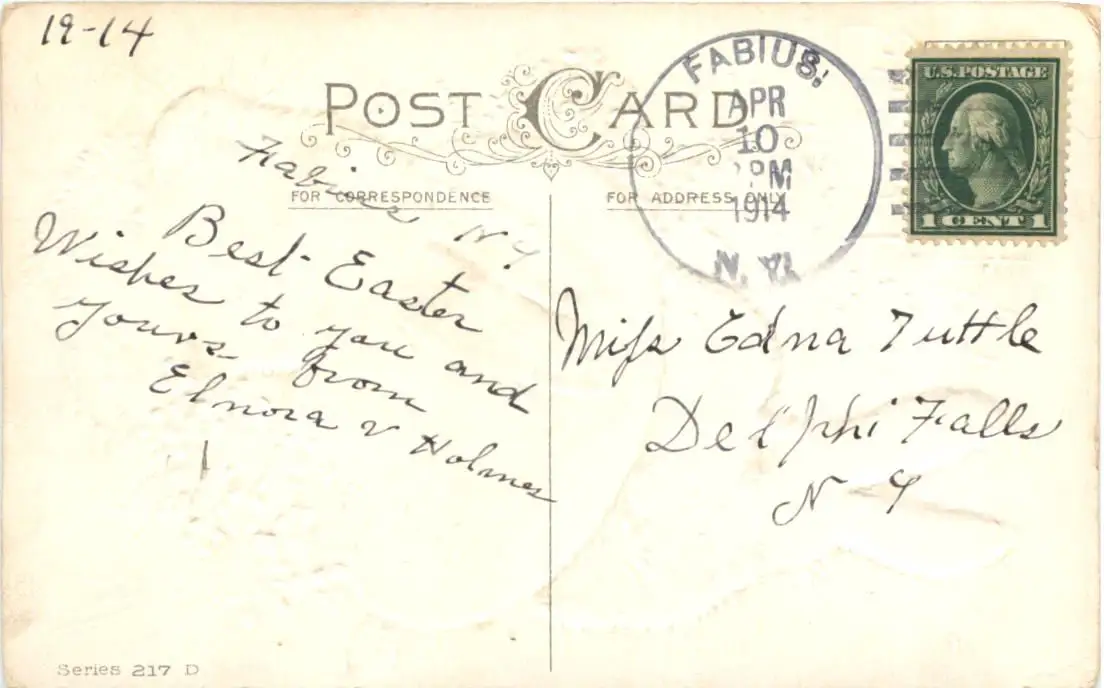 19-14
POST CARD
FABIUS,
APR
10
PM
1914
N.Y.
U.S. POSTAGE
1 CENT 1
FOR CORRESPONDENCE
FOR ADDRESS ONLY
Fabius N.Y.
Best Easter
Wishes to you and
yours from
Elnora V Holmes
Miss Edna Tuttle
Delphi Falls
N Y
Series 217 D